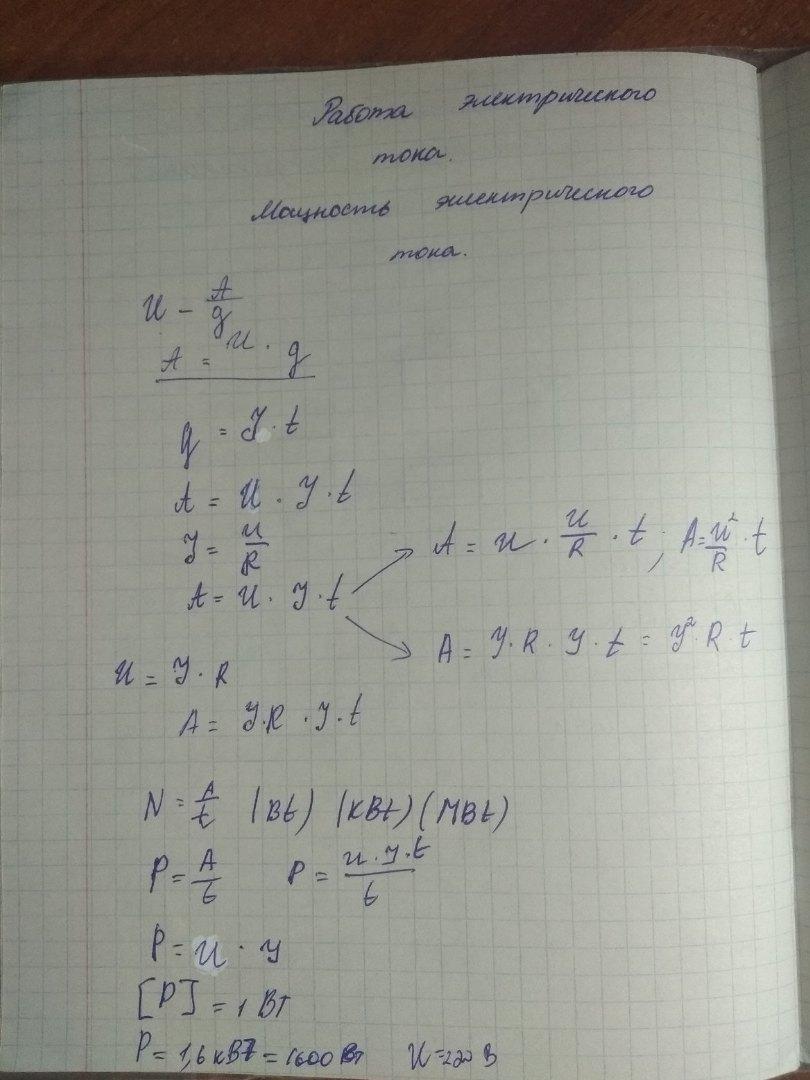 Работа электрического
тока.
Мощность электрического
тока.
U - A/g
A = U · g
g = I · t
A = U · I · t
I = U/R
A = U · I · t
A = U · U/R · t ; A = U²/R · t
A = I · R · I · t = I² · R · t
U = I · R
A = I · R · I · t
N = A/t (Вt) (кВt) (МВt)
P = A/t P = U · I · t/t
P = U · I
[P] = 1 Вт
P = 1,6 кВт = 1600 Вт U = 220 В